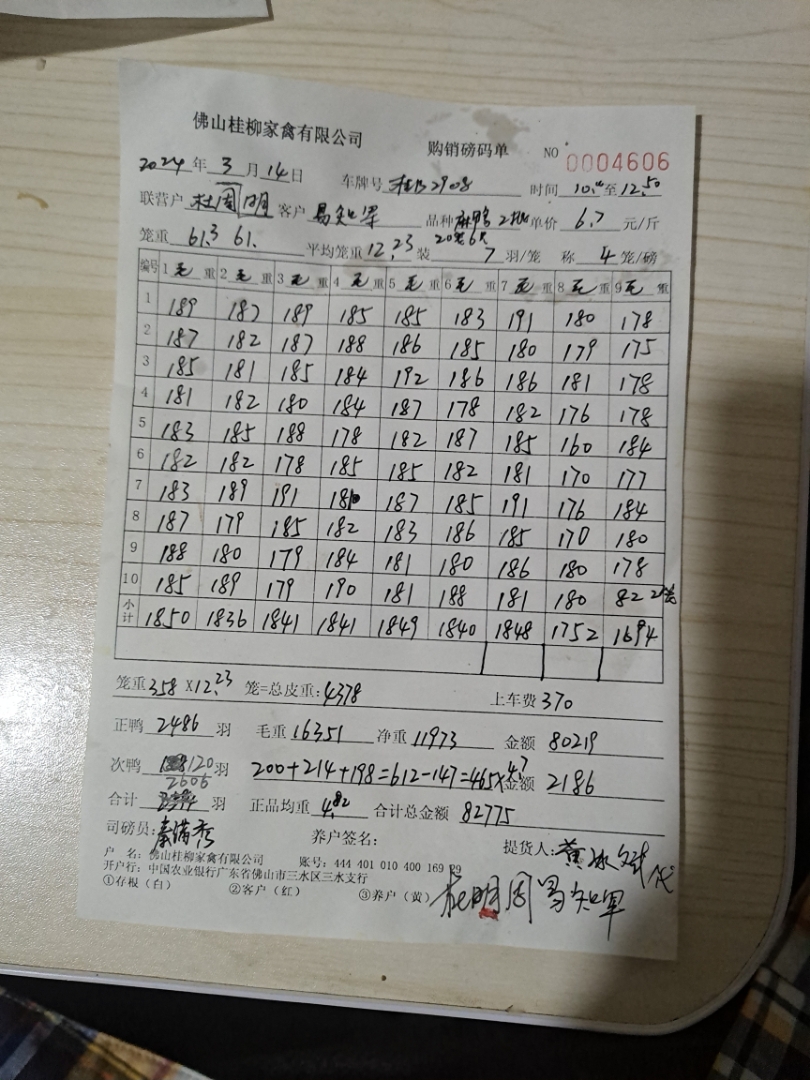 佛山桂柳家禽有限公司 购销磅码单 NO 0004606
2024 年 3 月 14 日 车牌号 2908 时间 10.10 至 12.50
联营户 杜周明 客户 易知军 品种 麻鸭 单价 6.7 元/斤
笼重 61.3 61. 平均笼重 12.23 装 20笼6只 7 羽/笼 称 4 笼/磅
编号 1 毛 重 2 毛 重 3 毛 重 4 毛 重 5 毛 重 6 毛 重 7 毛 重 8 毛 重 9 毛 重
1 189 187 189 185 185 183 191 180 178
2 187 182 187 188 186 185 180 179 175
3 185 181 185 184 192 186 186 181 178
4 181 182 180 184 187 178 182 176 178
5 183 185 188 178 182 187 185 160 184
6 182 182 178 185 185 182 181 170 177
7 183 189 191 181 187 185 191 176 184
8 187 179 185 182 183 186 185 170 180
9 188 180 179 184 181 180 186 180 178
10 185 189 179 190 181 188 181 180 82 2笼
小计 1850 1836 1841 1841 1849 1840 1848 1752 1694
笼重 358 X12.23 笼=总皮重: 4378 上车费 370
正鸭 2486 羽 毛重 16351 净重 11973 金额 80219
次鸭 120 羽 200+214+198=612-147=465×4.7 金额 2186
合计 2606 羽 正品均重 4.82 合计总金额 82775
司磅员: 秦满秀 养户签名: 提货人: 黄冰斌 代
户 名: 佛山桂柳家禽有限公司 账号: 444 401 010 400 169 29
开户行: 中国农业银行广东省佛山市三水区三水支行
①存根（白） ②客户（红） ③养户（黄） 杜明周 易知军